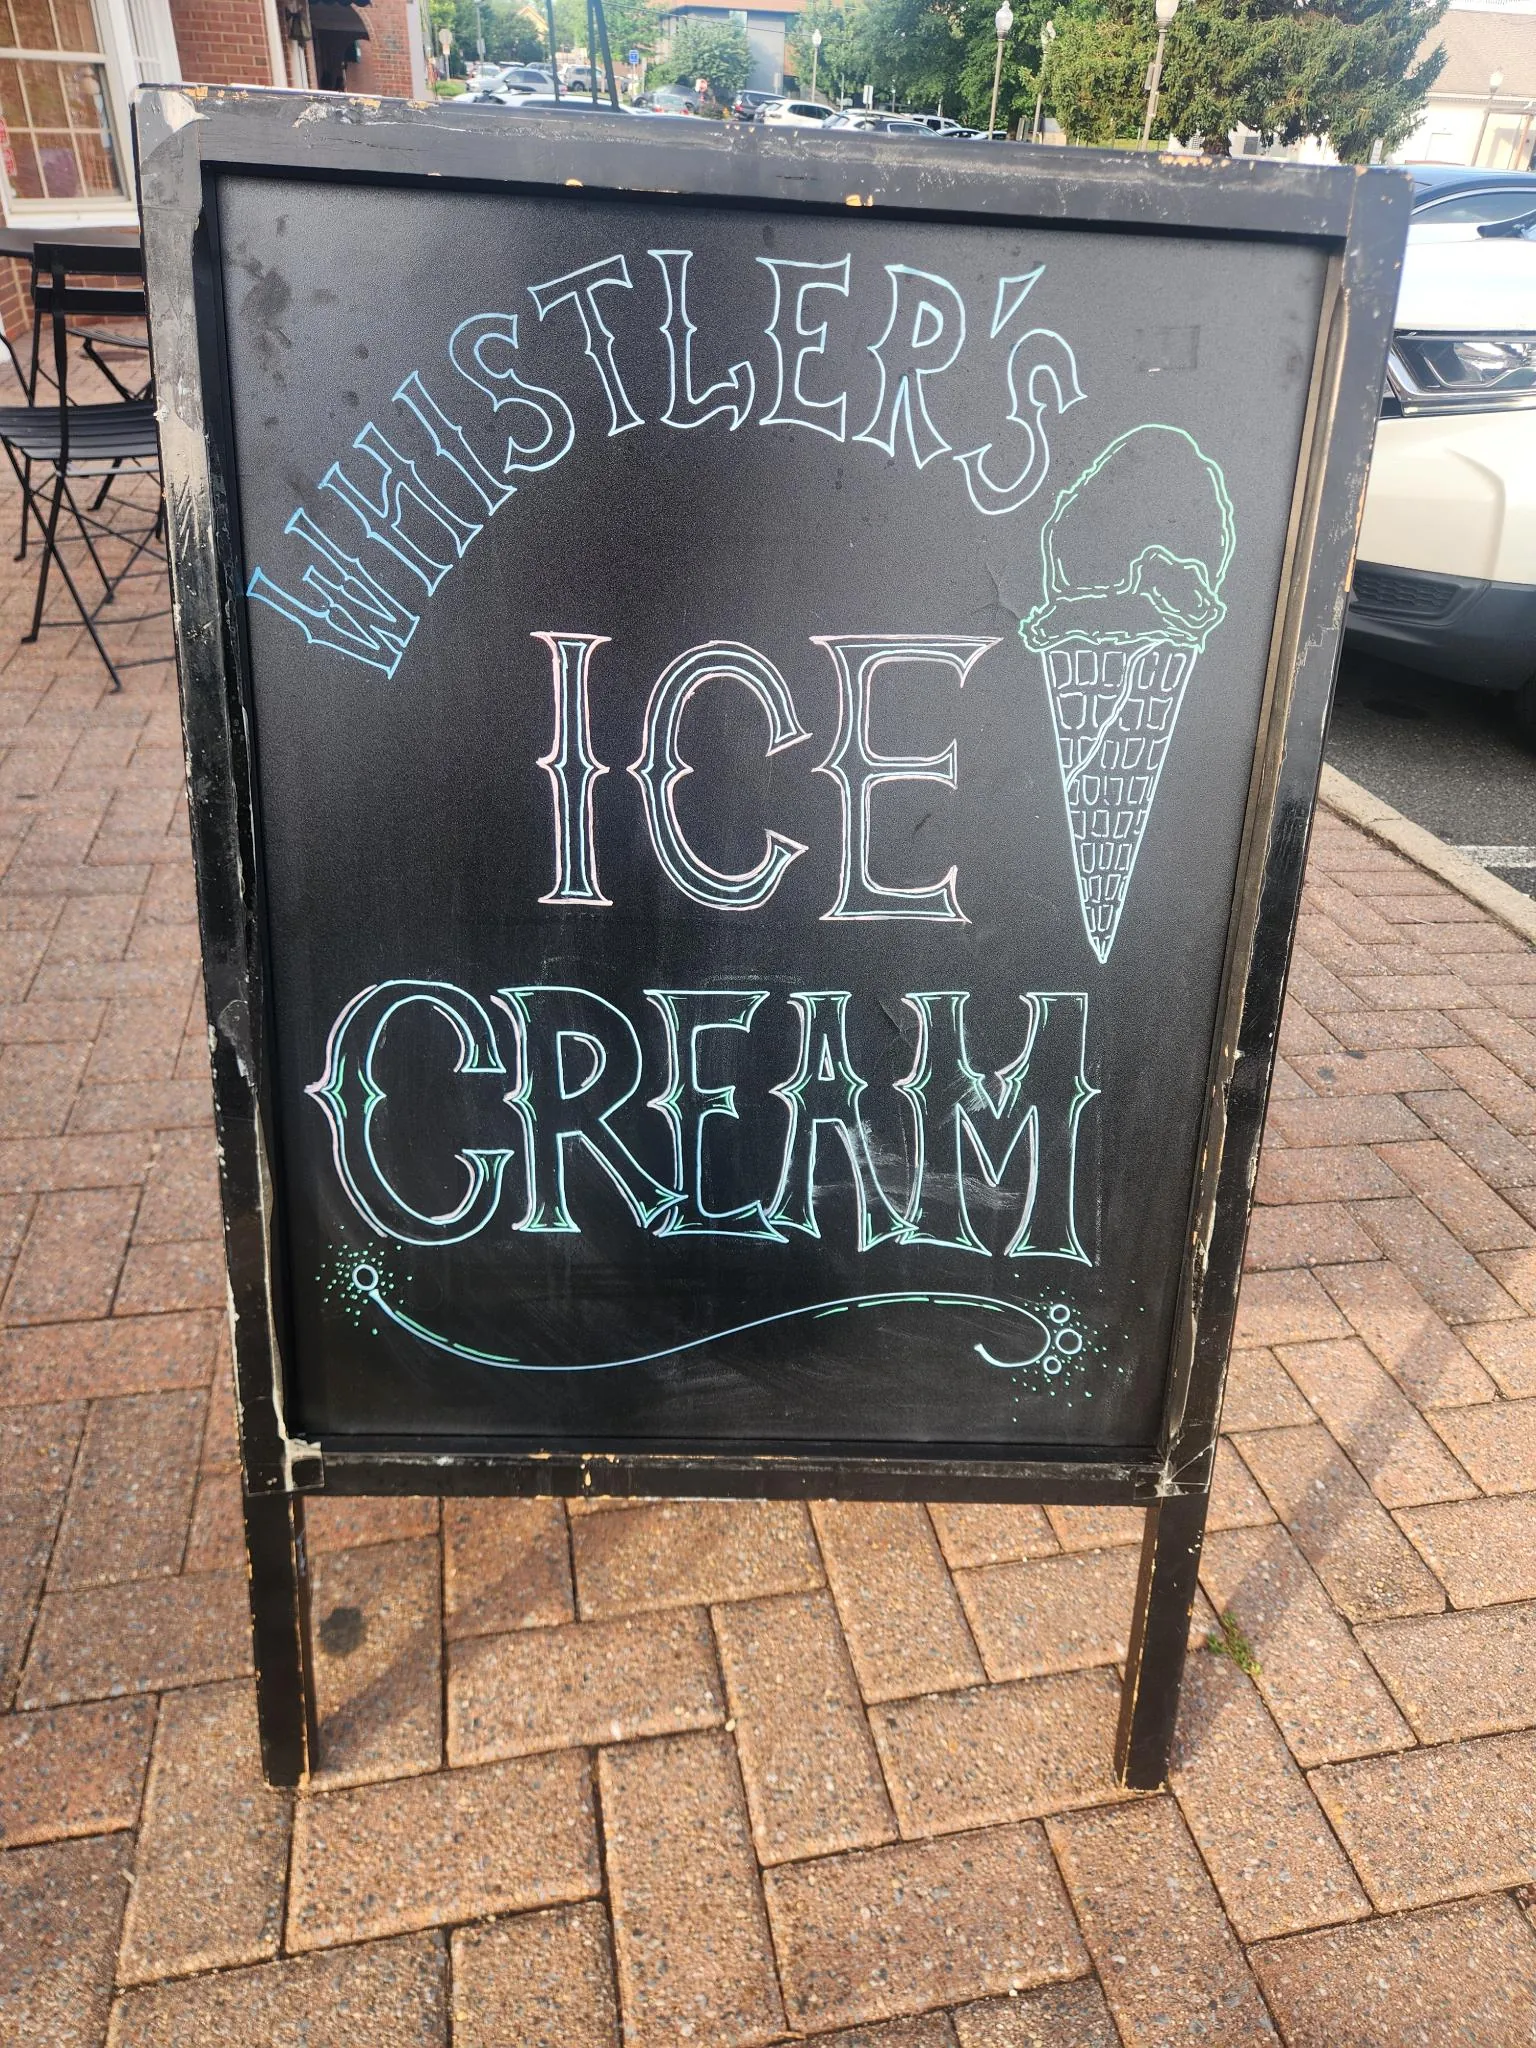 WHISTLER'S
ICE
CREAM